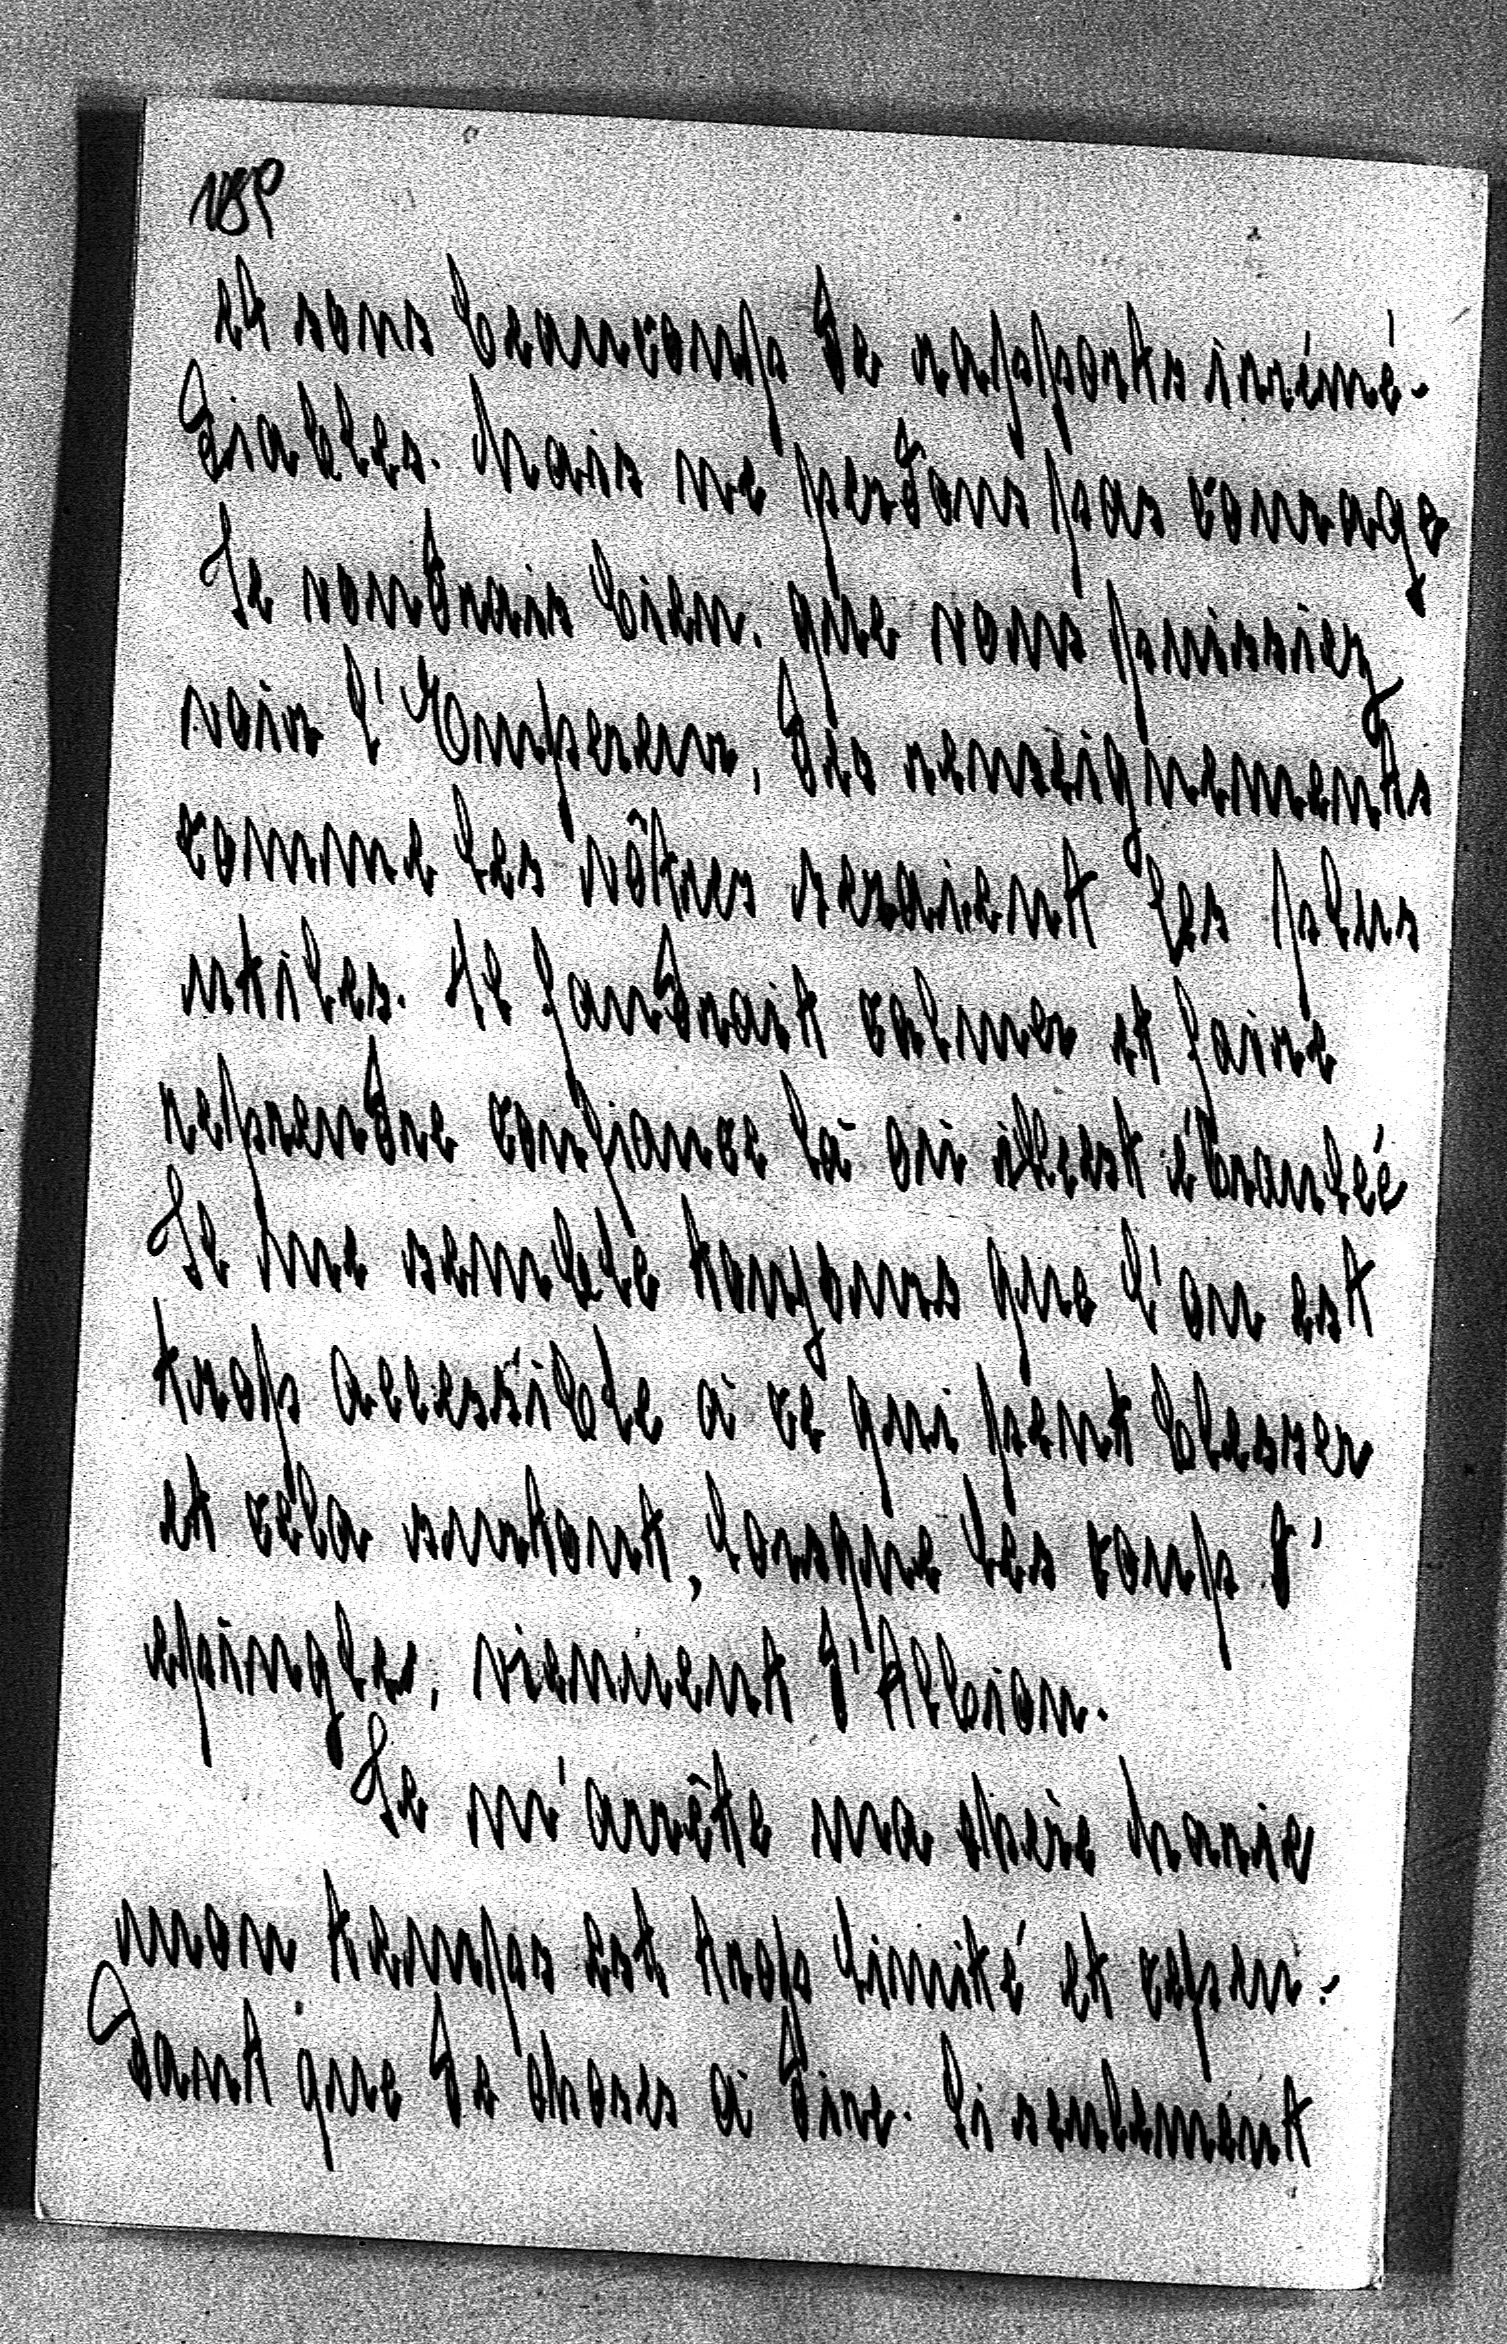 189
et sous beaucoup de rapports irrémé-
diables. Mais ne perdons pas courage
Je voudrais bien que vous puissiez
voir l'Empereur, des renseignements
comme les vôtres seraient les plus
utiles. Il faudrait calmer et faire
reprendre confiance là où elle est ébranlée
Il me semble toujours que l'on est
trop accessible à ce qui peut blesser
et cela surtout, lorsque les coups d'
epingles, viennent d'Albion.
Je m'arrête ma chère Marie
mon temps est trop limité et cepen-
dant que de choses à dire. Si seulement